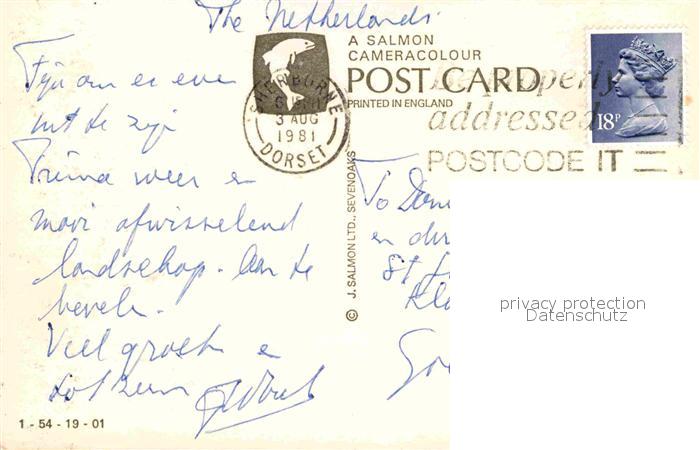 The Netherlands.
A SALMON
CAMERACOLOUR
POST CARD
PRINTED IN ENGLAND
SHERBORNE
3 AUG
1981
DORSET
properly
addressed
POSTCODE IT
18P
Fijn om er even
uit te zijn
Prima weer en
mooi afwisselend
landschap. Aan te
bevelen.
Veel groeten en
tot ziens
© J. SALMON LTD., SEVENOAKS
To
en
St
privacy protection
Datenschutz
1-54-19-01